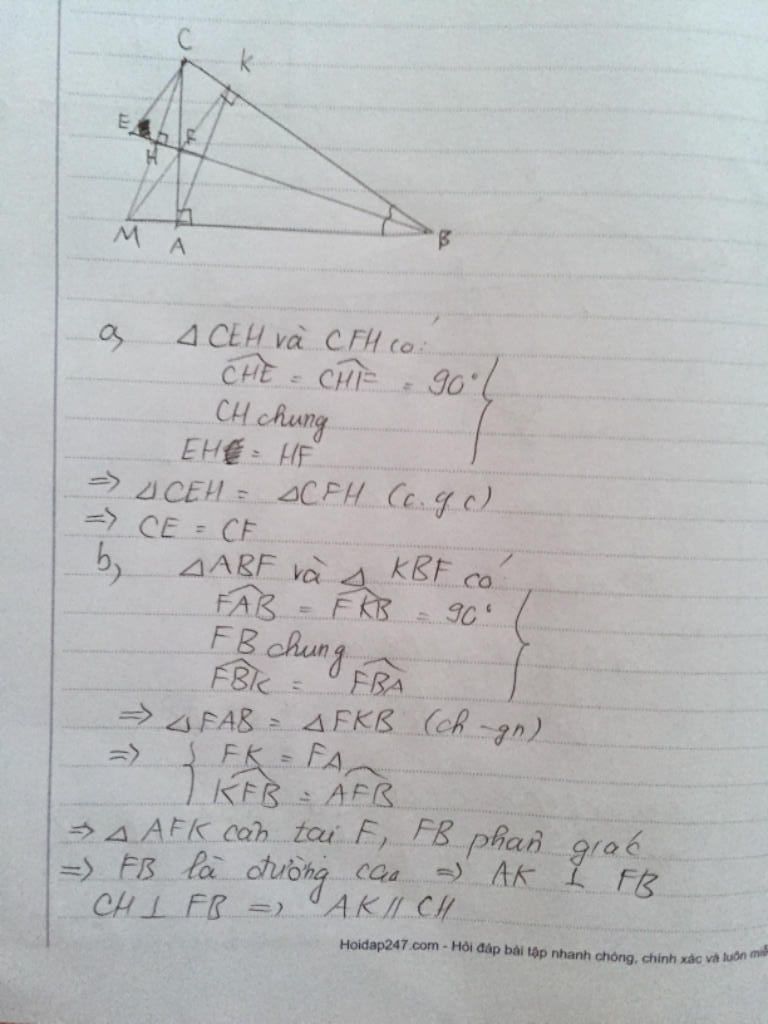 C
K
E
H
F
M
A
B
a, △CEH và CFH có:
CHE = CHF = 90°
CH chung
EH = HF
=> △CEH = △CFH (c.g.c)
=> CE = CF
b, △ABF và △ KBF có
FAB = FKB = 90°
FB chung
FBK = FBA
=> △FAB = △FKB (ch-gn)
=> { FK = FA
KFB = AFB
=> △ AFK cân tai F, FB phân giác
=> FB là đường cao => AK ⊥ FB
CH ⊥ FB => AK // CH
Hoidap247.com - Hỏi đáp bài tập nhanh chóng, chính xác và luôn miễ